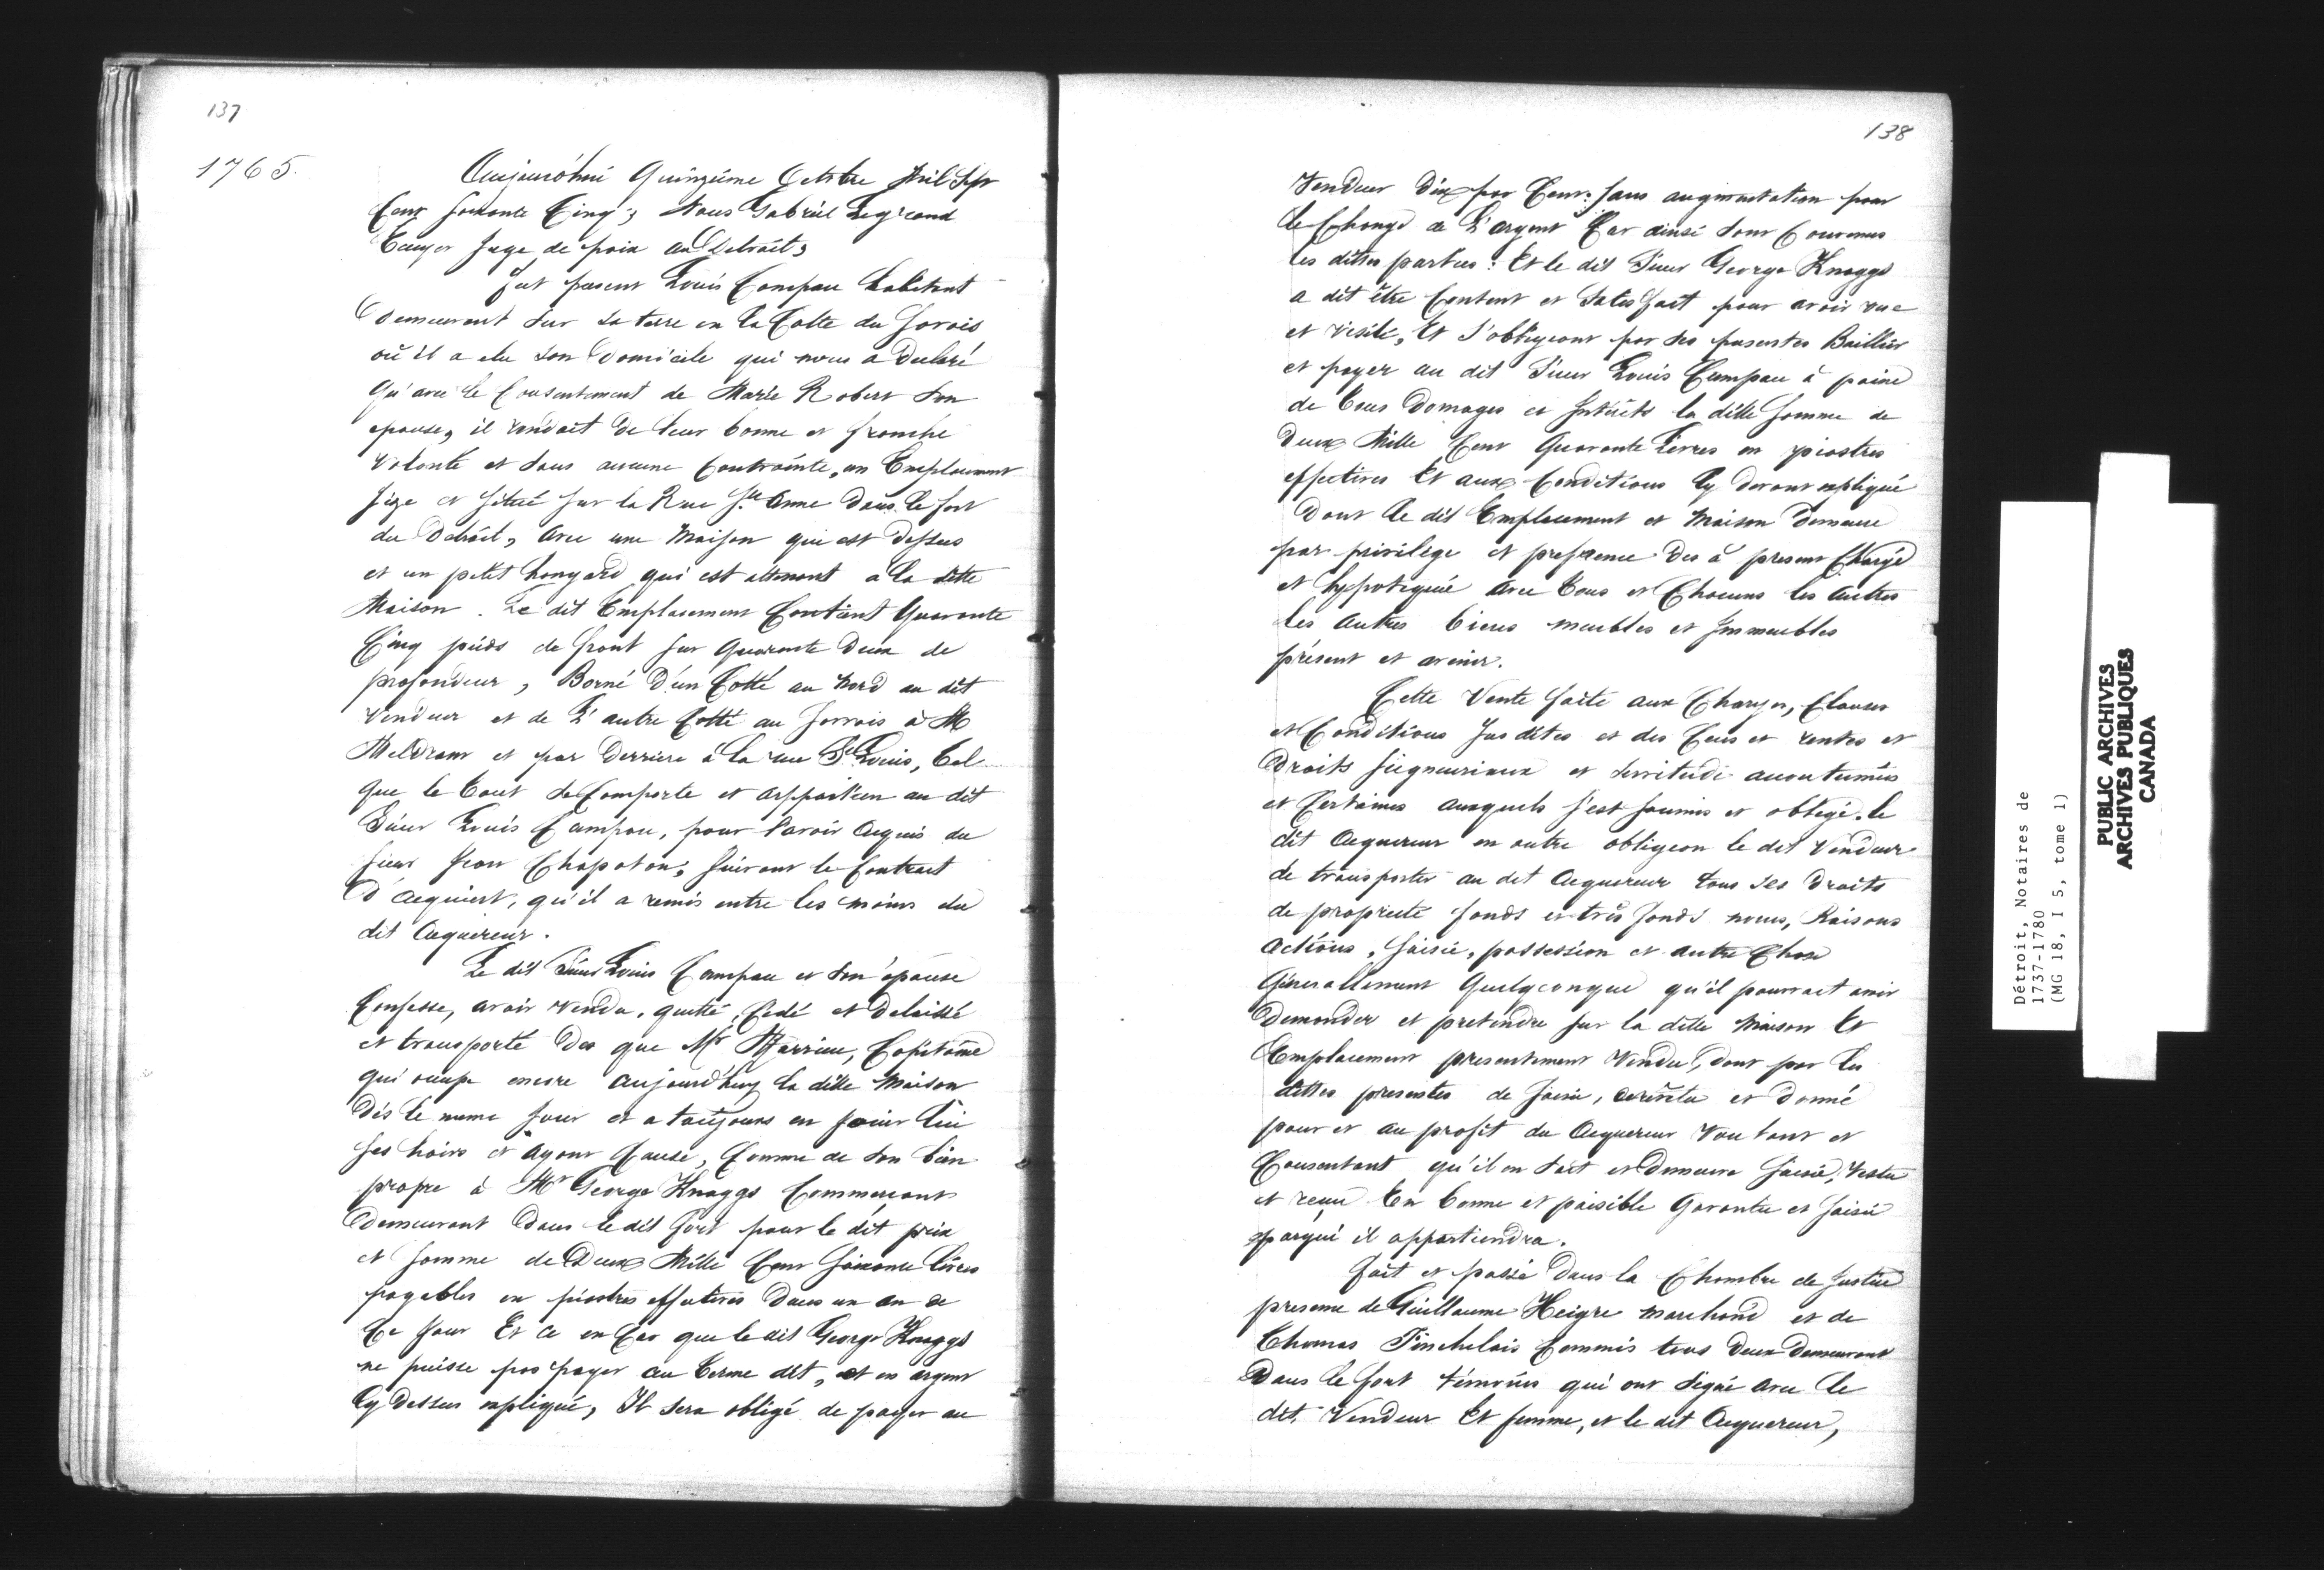 137
1765.
Aujourd'hui Quinzième Octobre Mil Sept
Cent soixante Cinq, Nous Gabriel Legrand
Ecuyer Juge de paix au Detroit,
fut present Louis Campau habitant
demeurant sur sa terre en la Cotte du Sorois
où il a elu son Domicile qui nous a Declaré
Qu'avec le Consentement de Marie Robert son
epouse, il vendait de leur bonne et franche
Volonté et sans aucune Contrainte, un Emplacement
size et situé sur la Rue Ste Anne dans le fort
du Detroit, avec une Maison qui est dessus
et un petit hangard qui est attenant a la ditte
Maison. Le dit Emplacement Contient Quarante
Cinq pieds de front sur Quarante deux de
profondeur, Borné D'un Cotté au Nord au dit
Vendeur et de L'autre Cotté au Sorrois à M
Meldram et par Derriere à la rue St Louis, tel
que le tout se Comporte et appartien au dit
Sieur Louis Campau, pour l'avoir acquis du
sieur Jean Chapoton, suivant le Contract
D'acquiert, qu'il a remis entre les mains du
dit acquereur.
Le dit Sieur Louis Campau et son épouse
Confesse, avoir Vendu, quitté, Cedé et Delaissé
et transporté des que Mr Marrieu, Capitaine
qui ocupe encore aujourd'huy la ditte Maison
Dès le meme Jour et a toujours en Jouir lui
ses hoirs et ayant Cause, Comme de son bien
propre à Mr George Knaggs Commerçant
Demeurant dans le dit fort pour le dit prix
et somme de Deux Mille Cent soixante livres
payables en piastres effectives dans un an de
Ce Jour Et Ce en Cas que le dit George Knaggs
ne puisse pas payer au terme dit, et en argent
Cy dessus expliqué, Il sera obligé de payer au
138
Vendeur Dix par Cent sans augmentation pour
le Change de L'argent Car ainsi sont Convenus
les dittes parties: Et le dit Sieur George Knaggs
a dit être Content et Satisfait pour avoir vue
et visité, Et S'obligeant par ses presentes Baillier
et payer au dit Sieur Louis Campau à paine
de tous Domages et Interêts la ditte Somme de
Deux Mille Cent Quarante livres en piastres
effectives Et aux Conditions Cy devant expliqué
Dont le dit Emplacement et Maison Demeure
par privilège et preference Des à present Chargé
et hypotequé avec tous et Chacuns les autres
les autres bien meubles et Immeubles
présent et avenir.
Cette Vente faite aux Charges, Clauses
et Conditions susdites et des Cens et rentes et
Droits seigneuriaux et servitude acoutumés
et Certaines auxquels s'est soumis et obligé le
dit acquereur en outre obligeon le dit Vendeur
de transporter au dit acquereur tous ses Droits
de propriété fonds et très fonds noms, Raisons
actions, saisie, possession et autre Chose
Généralement Quelquonque qu'il pourrait avoir
Demander et pretendre sur la ditte Maison Et
Emplacement presentement Vendu, dont par les
dittes presentes de saisie, et donné
pour et au profit du acquereur Voulant et
Consentant qu'il en soit et Demeure saisie, Vestu
et reçu En bonne et paisible Garantie et saisie
parqui il appartiendra.
fait et passé dans la Chambre de Justice
presence de Guillaume Heigre marchand et de
Thomas Finchelais Commis tous deux demeurant
Dans le fort témoins qui ont signé avec le
dit Vendeur Et femme, et le dit Acquereur,
Détroit, Notaires de
1737-1780
(MG 18, I 5, tome 1)
PUBLIC ARCHIVES
ARCHIVES PUBLIQUES
CANADA